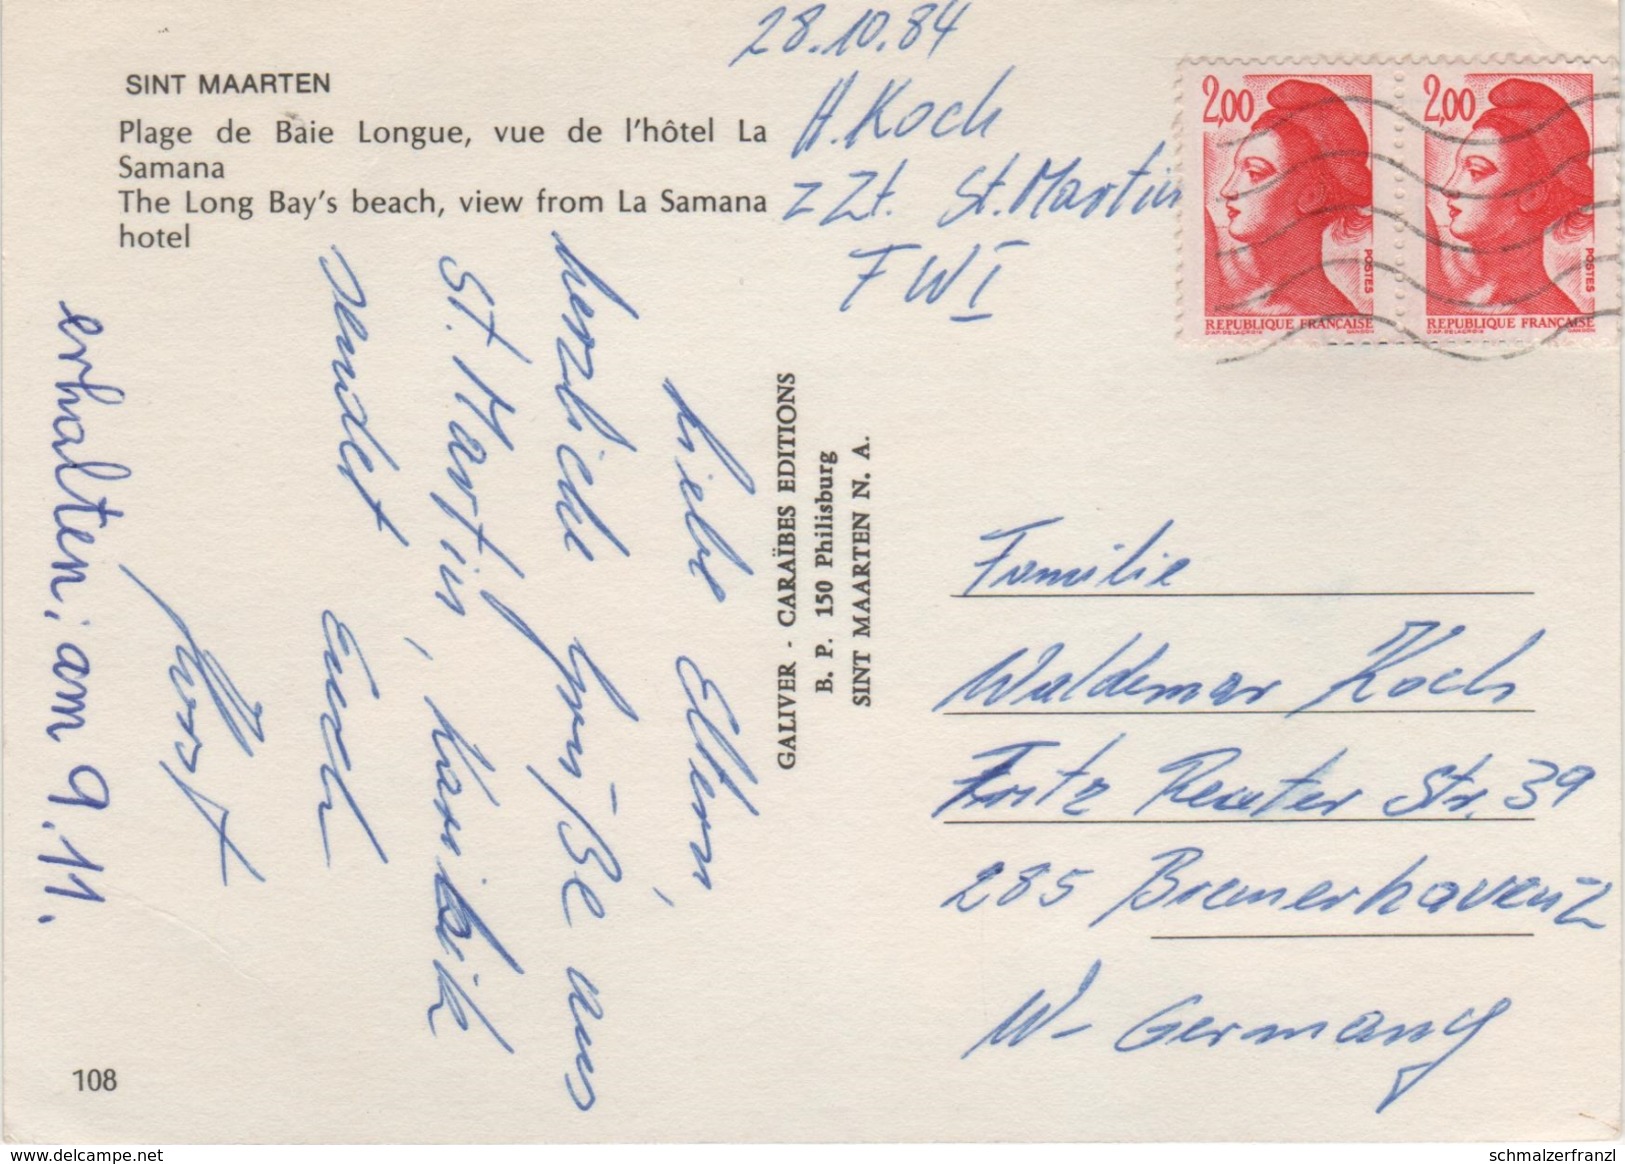 SINT MAARTEN
Plage de Baie Longue, vue de l'hôtel La
Samana
The Long Bay's beach, view from La Samana
hotel
28.10.84
H. Koch
z Zt. St. Martin
FWI
2,00
POSTES
REPUBLIQUE FRANÇAISE
D'AP. DELACROIX GANDON
2,00
POSTES
REPUBLIQUE FRANÇAISE
D'AP. DELACROIX GANDON
Liebe Eltern,
herzliche Grüße aus
St. Martin, Karibik
sendet Euch
Horst
erhalten: am 9.11.
GALIVER - CARAÏBES EDITIONS
B. P. 150 Philisburg
SINT MAARTEN N. A.
Familie
Waldemar Koch
Fritz Reuter Str. 39
285 Bremerhaven-2
W-Germany
108
www.delcampe.net
schmalzerfranzl